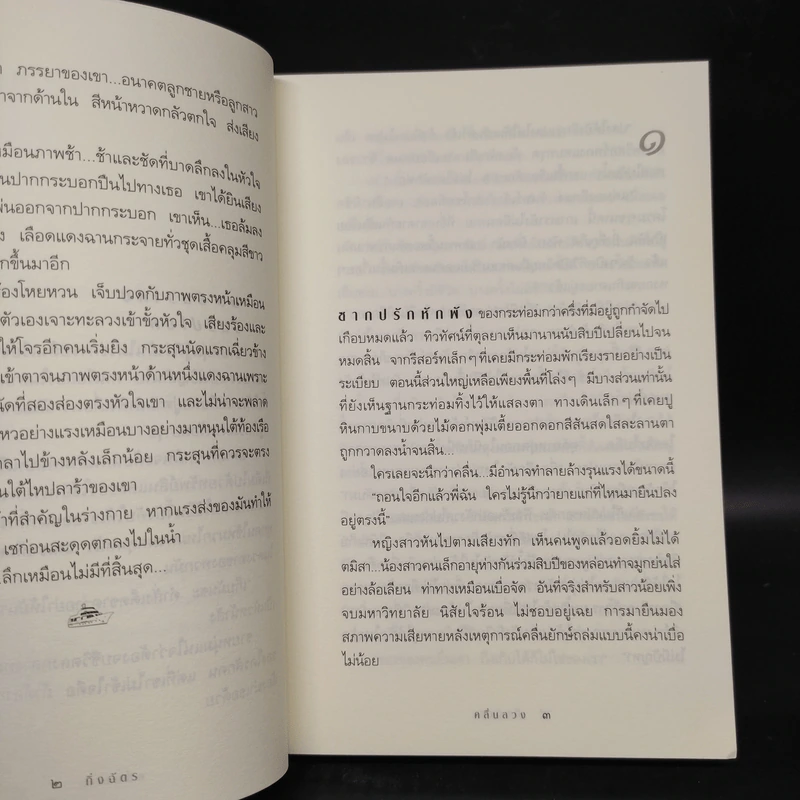 ภรรยาของเขา...อนาคตลูกชายหรือลูกสาว
จากด้านใน สีหน้าหวาดกลัวตกใจ ส่งเสียง
หมือนภาพช้า...ช้าและชัดที่บาดลึกลงในหัวใจ
นปากกระบอกปืนไปทางเธอ เขาได้ยินเสียง
ผ่นออกจากปากกระบอก เขาเห็น...เธอล้มลง
ง เลือดแดงฉานกระจายทั่วชุดเสื้อคลุมสีขาว
กขึ้นมาอีก
้องโหยหวน เจ็บปวดกับภาพตรงหน้าเหมือน
ตัวเองเจาะทะลวงเข้าขั้วหัวใจ เสียงร้องและ
ให้โจรอีกคนเริ่มยิง กระสุนนัดแรกเฉี่ยวข้าง
เข้าตาจนภาพตรงหน้าด้านหนึ่งแดงฉานเพราะ
นัดที่สองส่องตรงหัวใจเขา และไม่น่าจะพลาด
หวอย่างแรงเหมือนบางอย่างมาหนุนใต้ท้องเรือ
ลาไปข้างหลังเล็กน้อย กระสุนที่ควรจะตรง
นใต้ไหปลาร้าของเขา
ที่สำคัญในร่างกาย หากแรงส่งของมันทำให้
เซก่อนสะดุดตกลงไปในน้ำ
ลึกเหมือนไม่มีที่สิ้นสุด...
๒ กิ่งฉัตร
๑
ซากปรักหักพัง ของกระท่อมกว่าครึ่งที่มีอยู่ถูกกำจัดไป
เกือบหมดแล้ว ทิวทัศน์ที่ตุลยาเห็นมานานนับสิบปีเปลี่ยนไปจน
หมดสิ้น จากรีสอร์ทเล็กๆ ที่เคยมีกระท่อมพักเรียงรายอย่างเป็น
ระเบียบ ตอนนี้ส่วนใหญ่เหลือเพียงพื้นที่โล่งๆ มีบางส่วนเท่านั้น
ที่ยังเห็นฐานกระท่อมทิ้งไว้ให้แสลงตา ทางเดินเล็กๆ ที่เคยปู
หินกาบขนาบด้วยไม้ดอกพุ่มเตี้ยออกดอกสีสันสดใสละลานตา
ถูกกวาดลงน้ำจนสิ้น...
ใครเลยจะนึกว่าคลื่น...มีอำนาจทำลายล้างรุนแรงได้ขนาดนี้
“ถอนใจอีกแล้วพี่ฉัน ใครไม่รู้นึกว่ายายแก่ที่ไหนมายืนปลง
อยู่ตรงนี้”
หญิงสาวหันไปตามเสียงทัก เห็นคนพูดแล้วอดยิ้มไม่ได้
ตมิสา...น้องสาวคนเล็กอายุห่างกันร่วมสิบปีของหล่อนทำจมูกย่นใส่
อย่างล้อเลียน ท่าทางเหมือนเบื่อจัด อันที่จริงสำหรับสาวน้อยเพิ่ง
จบมหาวิทยาลัย นิสัยใจร้อน ไม่ชอบอยู่เฉย การมายืนมอง
สภาพความเสียหายหลังเหตุการณ์คลื่นยักษ์ถล่มแบบนี้คงน่าเบื่อ
ไม่น้อย
คลื่นลวง ๓